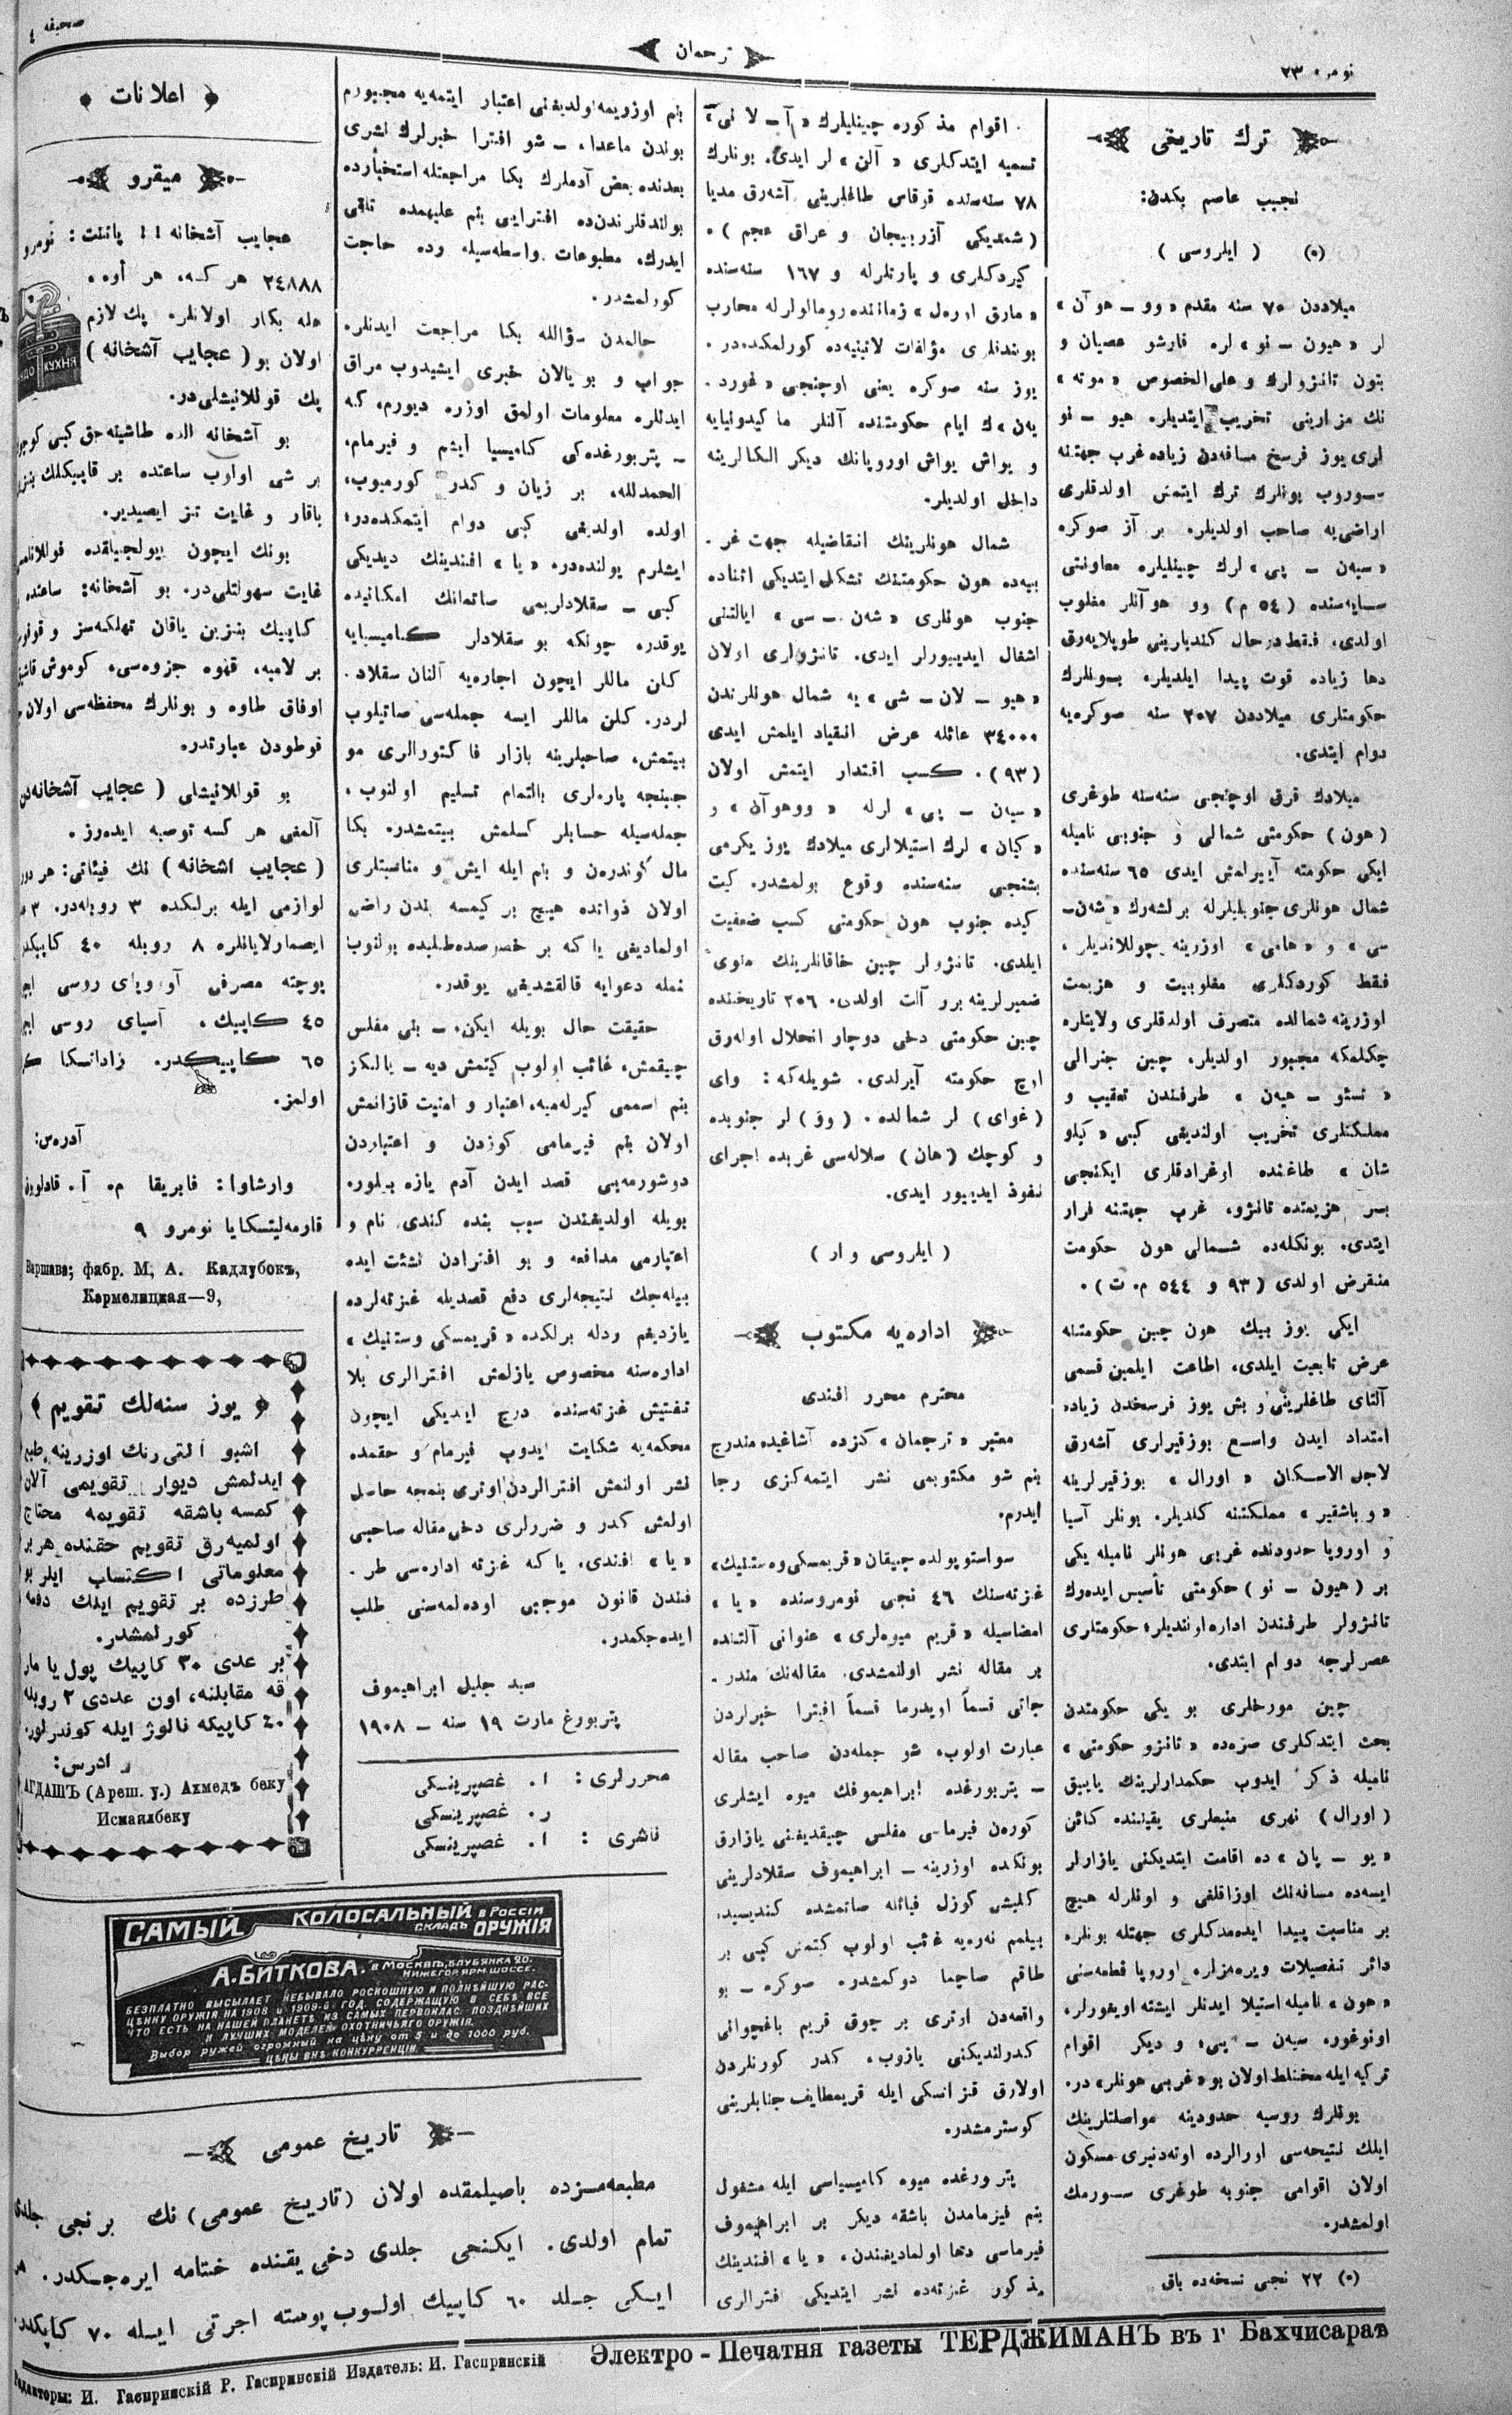 نومرو ٢٣
ترجمان
صحيفه ٤
ترك تاريخى
نجيب عاصم بكدن:
(٥) ( ايلروسى )
ميلاددن ٧٠ سنه مقدم « وو ــ هوآن »
لر « هيون ــ نو » لره قارشو عصيان و
بتون تانژولرك و على الخصوص « موته »
نك مزارينى تخريب ايتديلر. هيو ــ نو
لرى يوز فرسخ مسافه‌دن زياده غرب جهتنه
سوروب بونلرك ترك ايتمش اولدقلرى
اراضى‌يه صاحب اولديلر. بر آز صوكره
« سيه‌ن ــ پى » لرك چينليلره معاونتى
سايه‌سنده ( ٥٤ م ) وو هوآنلر مغلوب
اولدى. فقط درحال كنديلرينى طوپلايه‌رق
دها زياده قوت پيدا ايلديلر. بونلرك
حكومتلرى ميلاددن ٢٠٧ سنه صوكره‌يه
دوام ايتدى.
ميلادك قرق اوچنجى سنه‌سنه طوغرى
( هون ) حكومتى شمالى و جنوبى ناميله
ايكى حكومته آييرلمش ايدى ٦٥ سنه‌سنده
شمال هونلرى جنوبليلرله برلشه‌رك « شه‌ن ــ
سى » و « هامى » اوزرينه چوللانديلر.
فقط كوردكلرى مغلوبيت و هزيمت
اوزرينه شمالده متصرف اولدقلرى ولايتلره
چكلمكه مجبور اولديلر. چين جنرالى
« تسئو ــ هيه‌ن » طرفندن تعقيب و
مملكتلرى تخريب اولنديغى كبى « كيلو
شان » طاغنده اوغرادقلرى ايكنجى
بر هزيمتده تانژو، غرب جهتنه فرار
ايتدى. بونكله‌ده شمالى هون حكومت
منقرض اولدى ( ٩٣ و ٥٤٤ م. ت ) .
ايكى يوز بيك هون چين حكومتنه
عرض تابعيت ايلدى، اطاعت ايلمين قسمى
آلتاى طاغلرينى و بش يوز فرسخدن زياده
امتداد ايدن واسع بوزقيرلرى آشه‌رق
لاجل الاسكان « اورال » بوزقيرلرينه
« و باشقير » مملكتنه كلديلر. بونلر آسيا
و اوروپا حدودنده غربى هونلر ناميله يكى
بر ( هيون ــ نو ) حكومتى تأسيس ايده‌رك
تانژولر طرفندن اداره اولنديلر؛ حكومتلرى
عصرلرجه دوام ايتدى.
چين مورخلرى بو يكى حكومتدن
بحث ايتدكلرى صره‌ده « تانژو حكومتى »
ناميله ذكر ايدوب حكمدارلرينك يايبق
( اورال ) نهرى منبعلرى يقيننده كائن
« يو ــ پان » ده اقامت ايتديكنى يازارلر
ايسه‌ده مسافه‌نك اوزاقلغى و اونلرله هيچ
بر مناسبت پيدا ايده‌مدكلرى جهتله بونلره
دائر تفصيلات ويره‌مزلر. اوروپا قطعه‌سنى
« هون » ناميله استيلا ايدنلر ايشته اويغورلر،
اونوغور، سيه‌ن ــ پى، و ديكر اقوام
تركيه ايله مختلط اولان بو « غربى هونلر » در.
بونلرك روسيه حدودينه مواصلتلرينك
ايلك نتيجه‌سى اورالرده اوته‌دنبرى مسكون
اولان اقوامى جنوبه طوغرى سورمك
اولمشدر.
(٥) ٢٢ نجى نسخه‌ده باق
اقوام مذكوره چينليلرك « آ ــ لا نى »
تسميه ايتدكلرى « آلن » لر ايدى. بونلرك
٧٨ سنه‌سنده قوقاس طاغلرينى آشه‌رق مديا
( شمديكى آزربيجان و عراق عجم ) ه
كيردكلرى و پارتلرله و ١٦٧ سنه‌سنده
« مارق اوره‌ل » زماننده رومالولرله محارب
بولندقلرى مؤلفات لاتينيه‌ده كورلمكده‌در.
يوز سنه صوكره يعنى اوچنجى « غورد
يه‌ن » ك ايام حكومتنده آلنلر ماكيدونيايه
و يواش يواش اوروپانك ديكر الكالرينه
داخل اولديلر.
شمال هونلرينك انقاضيله جهت غر
بيه‌ده هون حكومتنك تشكل ايتديكى اثناده
جنوب هونلرى « شه‌ن ــ سى » ايالتنى
اشغال ايدييورلر ايدى. تانژولرى اولان
« هيو ــ لان ــ شى » يه شمال هونلرندن
٣٤٠٠٠ عائله عرض انقياد ايلمش ايدى
(٩٣) . كسب اقتدار ايتمش اولان
« سيان ــ پى » لرله « ووهوآن » و
« كيان » لرك استيلالرى ميلادك يوز يكرمى
بشنجى سنه‌سنده وقوع بولمشدر. كيت
كيده جنوب هون حكومتى كسب ضعفيت
ايلدى. تانژولر چين خاقانلرينك ماوى
ضميرلرينه برر آلت اولدى. ٢٠٦ تاريخنده
چين حكومتى دخى دوچار انحلال اوله‌رق
اوچ حكومته آيرلدى. شويله‌كه: واى
( غواى ) لر شمالده. ( وو ) لر جنوبده
و كوچك ( هان ) سلاله‌سى غربده اجراى
نفوذ ايدييور ايدى.
( ايلروسى وار )
اداره‌يه مكتوب
محترم محرر افندى
معتبر « ترجمان » كزده آشاغيده مندرج
بنم شو مكتوبمى نشر ايتمه‌كزى رجا
ايدرم.
سواستوپولده چيقان « قريمسكى وه‌ستنيك »
غزته‌سنك ٤٦ نجى نومروسنده « يا »
امضاسيله « قريم ميوه‌لرى » عنوانى آلتنده
بر مقاله نشر اولنمشدى. مقاله‌نك مندر
جاتى قسماً اويدرما قسماً افترا خبرلردن
عبارت اولوب، شو جمله‌دن صاحب مقاله
ــ پتربورغده ابراهيموفك ميوه ايشلرى
كوره‌ن فيرماسى مفلس چيقديغنى يازارق
بونكده اوزرينه ــ ابراهيموف سقلادلرينى
كليش كوزل فيائله صاتمشده كنديسيده
بيلمم نه‌ره‌يه غائب اولوب كيتمش كبى بر
طاقم صاچما دوكمشدر. صوكره ــ بو
واقعه‌دن اوترى بر چوق قريم باغچوانى
كدرلنديكنى يازوب، كدر كورنلردن
اولارق قنزانسكى ايله قريمطايف جنابلرينى
كوسترمشدر.
پتربورغده ميوه كاميسياسى ايله مشغول
بنم فيرمامدن باشقه ديكر بر ابراهيموف
فيرماسى دها اولماديغندن، « يا » افندينك
مذكور غزته‌ده نشر ايتديكى افترالرى
بنم اوزويمه اولديغنى اعتبار ايتمه‌يه مجبورم
بوندن ماعدا، ــ شو افترا خبرلرك نشرى
بعدنده بعض آدملرك بكا مراجعتله استخبارده
بولندقلرندن‌ده افترايى بنم عليهمده تلقى
ايدرك، مطبوعات واسطه‌سيله رده حاجت
كورلمشدر.
حالمدن سؤالله بكا مراجعت ايدنلره
جواب و بو يالان خبرى ايشيدوب مراق
ايدنلره معلومات اولمق اوزره ديورم، كه
ــ پتربورغده‌كى كاميسيا ايشم و فيرمام،
الحمدلله، بر زيان و كدر كورميوب،
اولده اولديغى كبى دوام ايتمكده‌در؛
ايشلرم يولنده‌در. « يا » افندينك ديديكى
كبى ــ سقلادلريمى صاتمانك امكانيده
يوقدر، چونكه بو سقلادلر كاميسيايه
كلن ماللر ايچون اجاره‌يه آلنان سقلاد
لردر. كلن ماللر ايسه جمله‌سى صاتيلوب
بيتمش، صاحبلرينه بازار فاكتورالرى مو
جبنجه پاره‌لرى بالتمام تسليم اولنوب.
جمله‌سيله حسابلر كسلمش بيتمشدر. بكا
مال كوندره‌ن و بنم ايله ايش و مناسبتلرى
اولان ذواتده هيچ بر كيمسه بندن راضى
اولماديغى ياكه بر خصوصده طلبده بولنوب
بنمله دعوايه قالقشديغى يوقدر.
حقيقت حال بويله ايكن، ــ بنى مفلس
چيقمش، غائب اولوب كيتمش ديه ــ يالكز
بنم اسممى كيرله‌مه‌يه، اعتبار و امنيت قازانمش
اولان بنم فيرمامى كوزدن و اعتباردن
دوشورمه‌يى قصد ايدن آدم يازه بيلور.
بويله اولديغندن سبب بنده كندى نام و
اعتبارمى مدافعه و بو افترادن نشئت ايده
بيله‌جك نتيجه‌لرى دفع قصديله غزته‌لرده
يازديغم ردله برلكده « قريمسكى وستنيك »
اداره‌سنه مخصوص يازلمش افترالرى بلا
تفتيش غزته‌سنده درج ايديكى ايچون
محكمه‌يه شكايت ايدوب فيرمام و حقمده
نشر اولنمش افترالردن اوترى بنمجه حاصل
اولمش كدر و ضررلرى دخى مقاله صاحبى
« يا » افندى، ياكه غزته اداره‌سى طر
فندن قانون موجبى اوده‌لمه‌سنى طلب
ايده‌جكمدر.
سيد جليل ابراهيموف
پتربورغ مارت ١٩ سنه ــ ١٩٠٨
محررلرى: ا. غصپرينسكى
ر. غصپرينسكى
ناشرى: ا. غصپرينسكى
اعلانات
ميقرو
عجايب آشخانه !! پاتنت: نومرو
٢٤٨٨٨ هر كه، هر أوه،
هله بكار اولانلره پك لازم
اولان بو ( عجايب آشخانه )
پك قوللانيشلى‌در.
КУХНЯ
بو آشخانه الده طاشينه‌جق كبى كوچوك
بر شى اولوب ساعتده بر قاپيكلك بنزين
ياقار و غايت تيز ايصيدير.
بونك ايچون بيولجيلقده قوللانلمسى
غايت سهولتلى‌در. بو آشخانه: ساعتده
كاپيك بنزين ياقان تهلكه‌سز و قوقوسز
بر لامبه، قهوه جزوه‌سى، كوموش قاشق
اوفاق طاوه و بونلرك محفظه‌سى اولان
قوطودن عبارتدر.
بو قوللانيشلى ( عجايب آشخانه‌دن
آلمغى هر كسه توصيه ايده‌رز.
( عجايب آشخانه ) نك فيئاتى: هر درلو
لوازمى ايله برلكده ٣ روبله‌در. ٣
ايصمارلايانلره ٨ روبله ٤٠ كاپيكدر
پوچته مصرفى آوروپاى روسى ايچون
٤٥ كاپيك، آسياى روسى ايچون
٦٥ كاپيكدر. زاداتسكا
اولمز.
آدره‌س:
وارشاوا: فابريقا م. آ. قادلوبوق
قارمه‌ليتسكايا نومرو ٩
Варшава; фабр. М. А. Кадлубокъ,
Кармелицкая—9,
يوز سنه‌لك تقويم
اشبو آلتى رنك اوزرينه طبع
ايدلمش ديوار تقويمى آلان
كمسه باشقه تقويمه محتاج
اولميه‌رق تقويم حقنده هر بر
معلوماتى اكتساب ايلر. بو
طرزده بر تقويم ايلك دفعه
كورلمشدر.
بر عددى ٣٠ كاپيك پول يا مار
قه مقابلنه، اون عددى ٢ روبله
٤٠ كاپيكه نالوژ ايله كوندرلور.
ادرس:
АГДАШЪ (Ареш. у.) Ахмедъ беку
Исмаилбеку
САМЫЙ КОЛОСАЛЬНЫЙ въ РОССІИ
СКЛАДЪ ОРУЖІЯ
А. БИТКОВА. въ Москвѣ, Б. ЛУБЯНКА 20.
НИЖЕГОР. ЯРМ. ШОССЕ.
БЕЗПЛАТНО ВЫСЫЛАЕТ НЕБЫВАЛО РОСКОШНУЮ И ПОЛНѢЙШУЮ РАС-
ЦѢНКУ ОРУЖІЯ НА 1908 и 1909-й ГОД. СОДЕРЖАЩУЮ В СЕБѢ ВСЕ
ЧТО ЕСТЬ НА НАШЕЙ ПЛАНЕТѢ ИЗ САМЫХ ПЕРВОКЛАС. ПОЗДНѢЙШИХ
И ЛУЧШИХ МОДЕЛЕЙ ОХОТНИЧЬЯГО ОРУЖІЯ.
Выбор ружей огромный на цѣну от 5 и до 1000 руб.
ЦѢНЫ ВНѢ КОНКУРРЕНЦІИ.
تاريخ عمومى
مطبعه‌مزده باصيلمقده اولان (تاريخ عمومى) نك برنجى جلدى
تمام اولدى. ايكنجى جلدى دخى يقنده ختامه ايره‌جكدر.
ايكى جلد ٦٠ كاپيك اولوب پوسته اجرتى ايله ٧٠ كاپكدر
Электро-Печатня газеты ТЕРДЖИМАНЪ въ г Бахчисараѣ
Редакторы: И. Гаспринскій Р. Гаспринскій Издатель: И. Гаспринскій